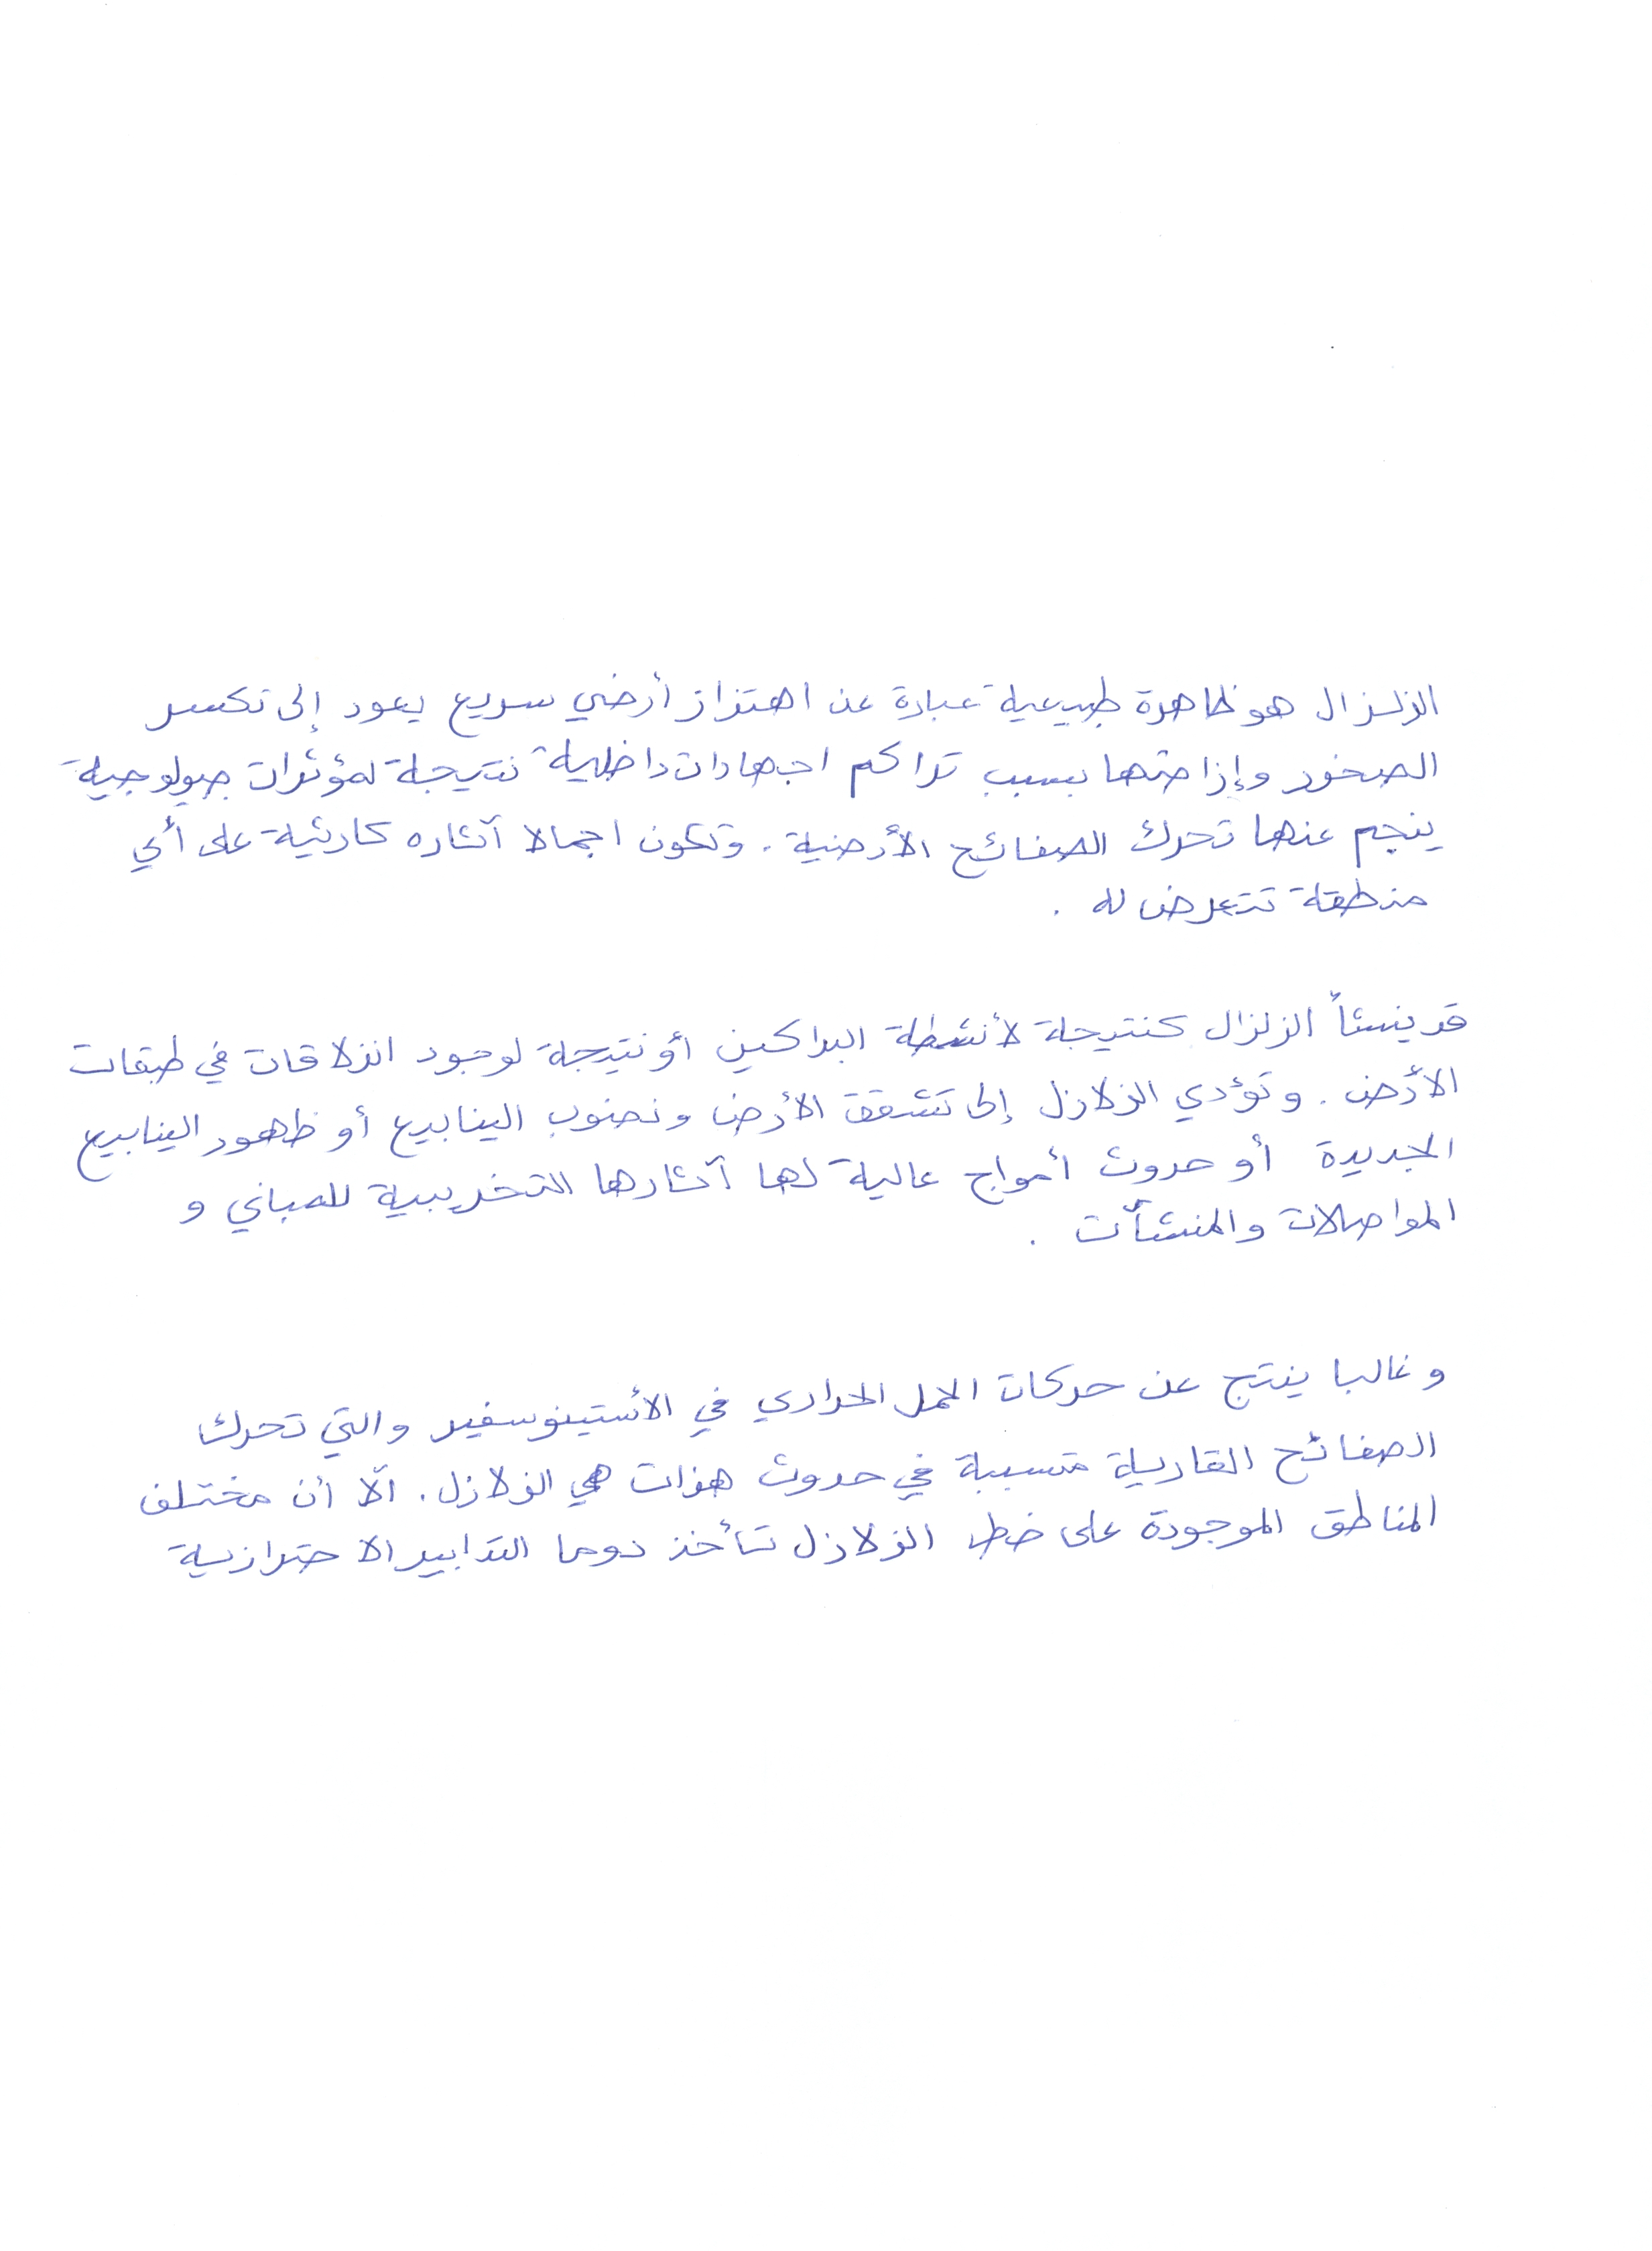 الزلزال هو ظاهرة طبيعية عبارة عن اهتزاز أرضي سريع يعود إلى تكسر
الصخور وإزاحتها بسبب تراكم اجهادات داخلية نتيجة لمؤثرات جيولوجية
ينجم عنها تحرك الصفائح الأرضية. وتكون اجمالا آثاره كارثية على أي
منطقة تتعرض له .
قد ينشأ الزلزال كنتيجة لأنشطة البراكين أو نتيجة لوجود انزلاقات في طبقات
الأرض. وتؤدي الزلازل إلى تشقق الأرض ونضوب الينابيع أو ظهور الينابيع
الجديدة أو حدوث أمواج عالية لها آثارها التخريبية للمباني و
المواصلات والمنشآت .
وغالبا ينتج عن حركات الحمل الحراري في الأستينوسفير والتي تحرك
الصفائح القارية متسببة في حدوث هزات هي الزلازل. الّا أن مختلف
المناطق الموجودة على خط الزلازل تأخذ دوما التدابير الاحترازية